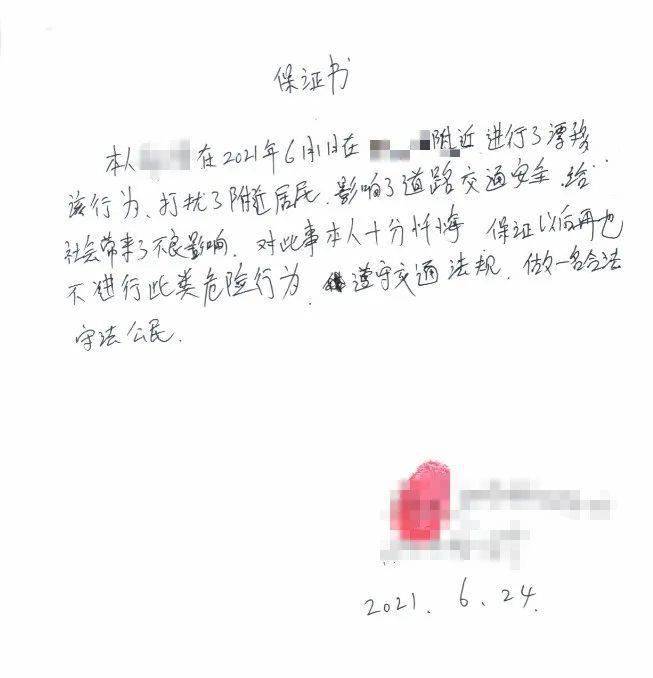 保证书
本人在2021年6月1日在附近进行了漂移
该行为、打扰了附近居民、影响了道路交通安全、给
社会带来了不良影响、对此事本人十分忏悔 保证以后再也
不进行此类危险行为、遵守交通法规、做一名合法
守法公民、
2021.6.24.